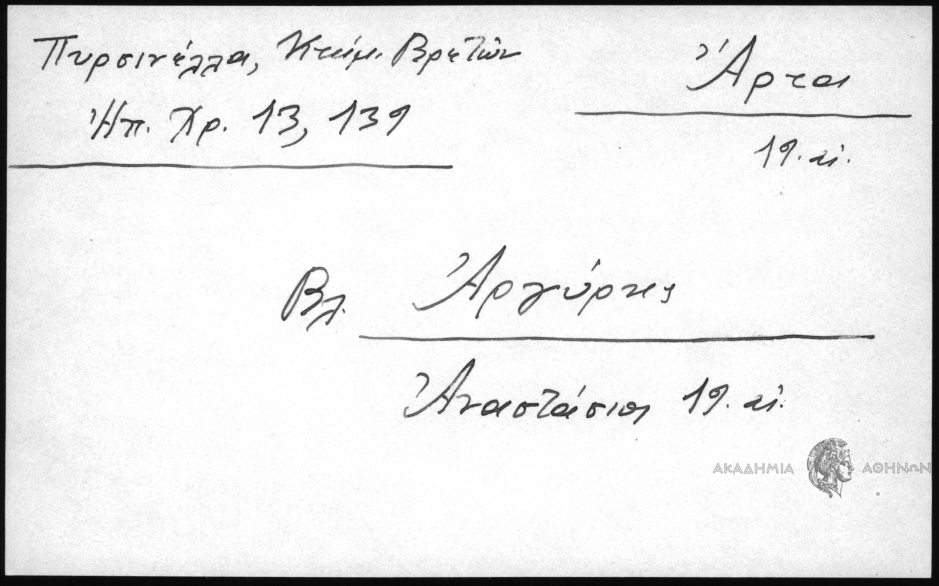 Πυρσινέλλα, Κτήμ. Βρετῶν
Ἠπ. Χρ. 13, 139
Ἄρτα
19. αἰ.
Βλ. Ἀργύρης
Ἀναστάσιος 19. αἰ.
ΑΚΑΔΗΜΙΑ ΑΘΗΝΩΝ